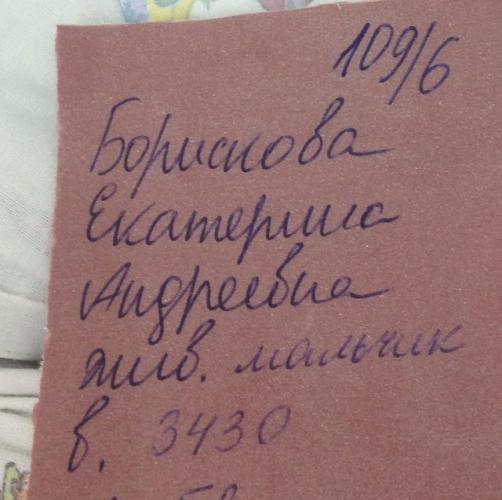 109/6
Борискова
Екатерина
Андреевна
жив. мальчик
в. 3430